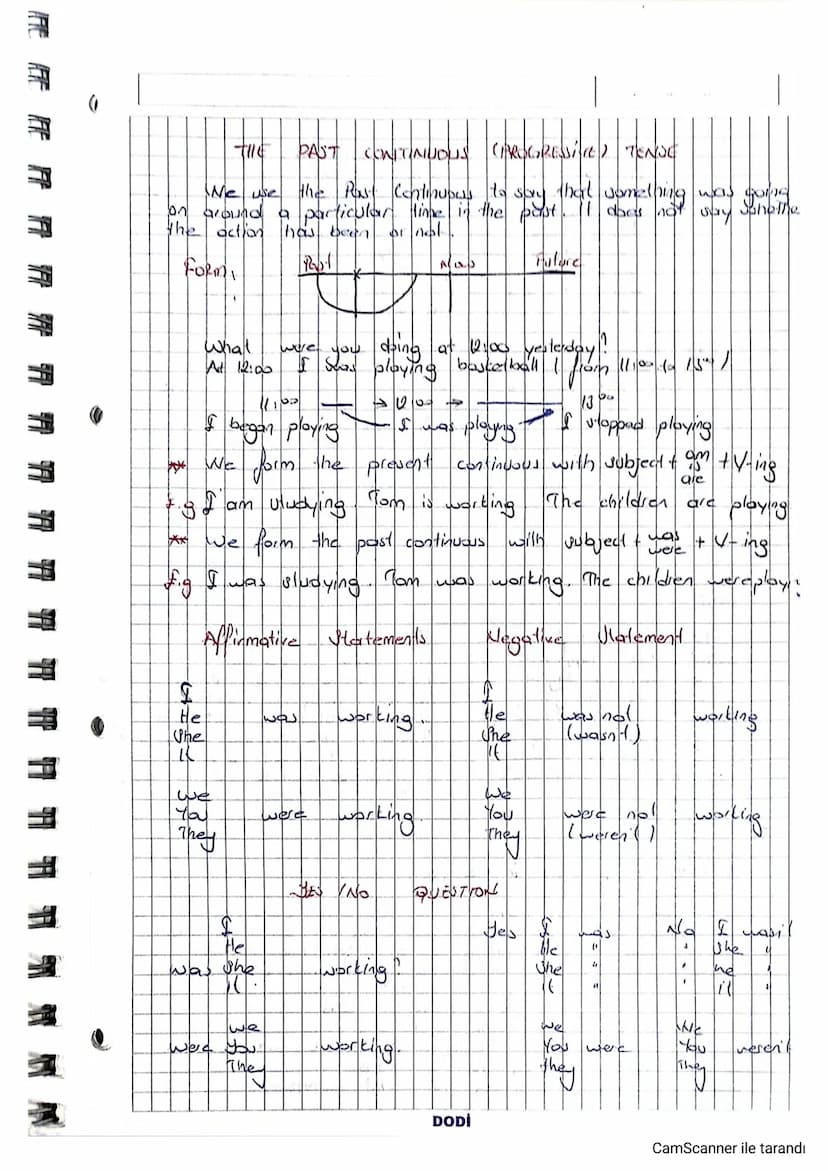 THE PAST CONTINUOUS (PROGRESSIVE) TENSE
We use the Past Continuous to say that something was going
on around a particular time in the past. It does not say whethe
the action has been or not.
Form:
Past Now Future
What were you doing at 12:00 yesterday?
At 12:00 I was playing basketball ( from 11:00 to 13⁰⁰ )
11:00 → 12:00 → 13⁰⁰
I began playing I was playing I stopped playing
** We form the present continuous with subject + am is are + V-ing
E.g I am studying. Tom is working The children are playing
** We form the past continuous with subject + was were + V-ing
E.g I was studying. Tom was working. The children were play
Affirmative Statements Negative Statement
I I
He was working. He was not working
She She (wasn't)
It It
We We
You were working. You were not working
They They (weren't)
YES / NO QUESTION
I Yes I was No I wasn't
He He " " She "
was she working? She " " he "
it. it " " it "
we we We
were you working. You were You weren't
They they They
DODİ
CamScanner ile tarandı